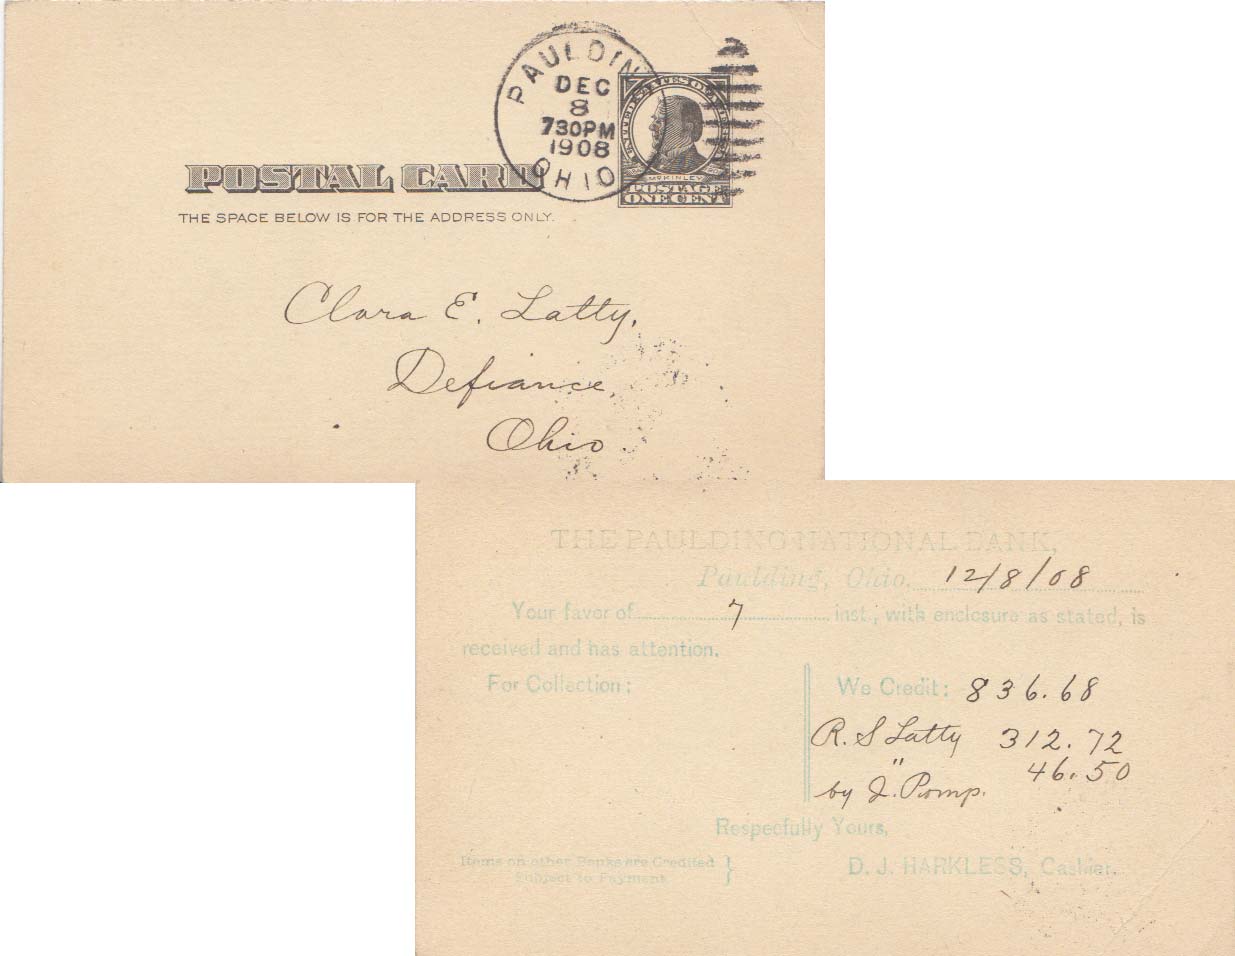 PAULDIN
DEC
8
730PM
1908
OHIO
UNITED STATES OF AMERICA
McKINLEY
POSTAGE
ONE CENT
POSTAL CARD
THE SPACE BELOW IS FOR THE ADDRESS ONLY.
Clara E. Latty,
Defiance,
Ohio.
THE PAULDING NATIONAL BANK,
Paulding, Ohio. 12/8/08
Your favor of 7 inst., with enclosure as stated, is
received and has attention.
For Collection:
We Credit: 836.68
R. S Latty 312.72
" 46.50
by J. Pomp.
Respecfully Yours,
Items on other Banks are Credited
Subject to Payment.
D. J. HARKLESS, Cashier.